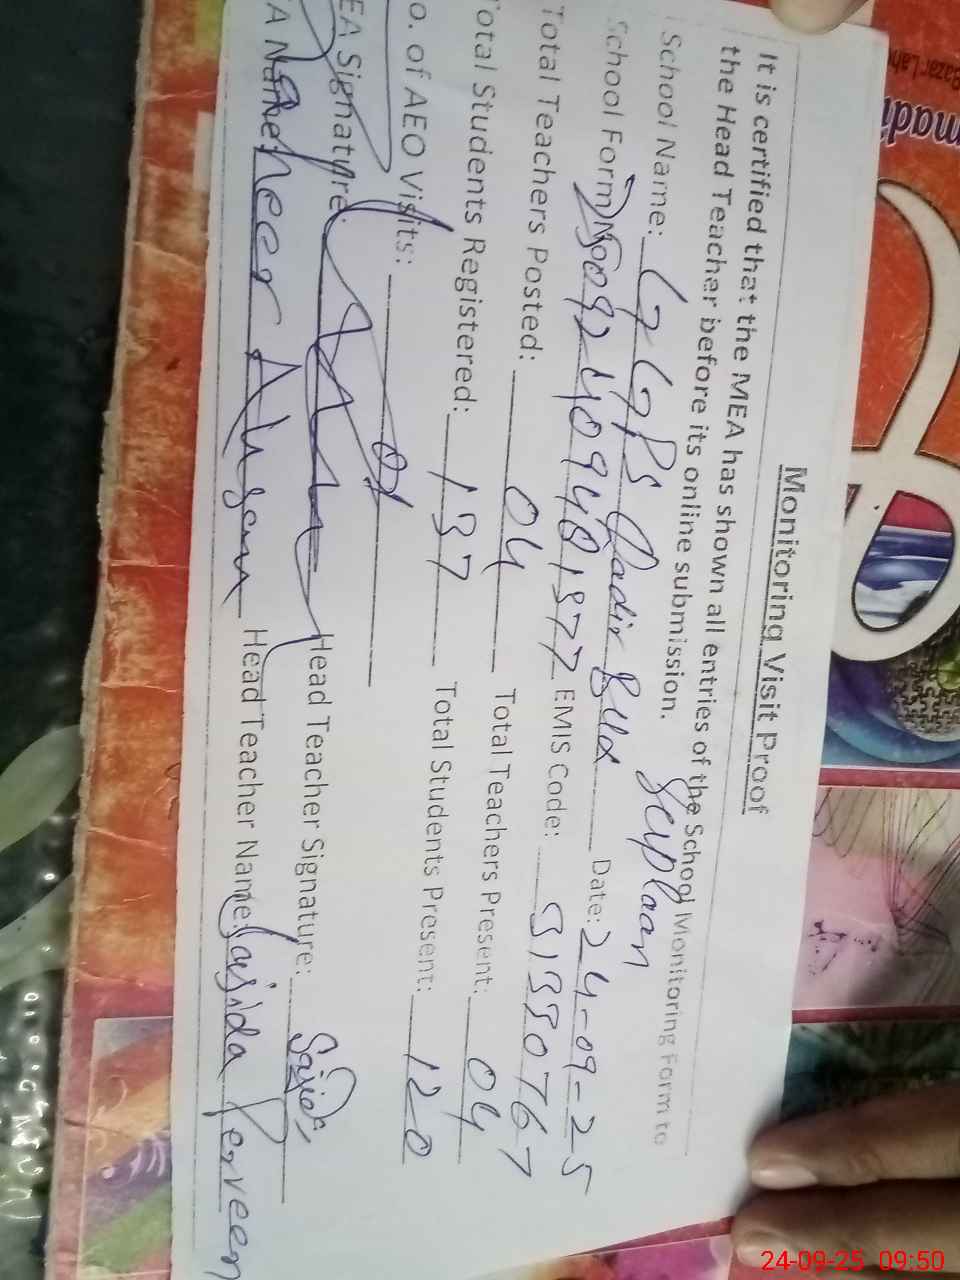 Monitoring Visit Proof
It is certified that the MEA has shown all entries of the School Monitoring Form to
the Head Teacher before its online submission.
School Name: GGPS Qadir Bux Seplaan
School Form No Date: 24-09-25
EMIS Code: 31330767
Total Teachers Posted: 04 Total Teachers Present: 04
Total Students Registered: 137 Total Students Present: 120
o. of AEO Visits: 01
EA Signature: Head Teacher Signature: Sajida
A Name: Zaheer Ahsan Head Teacher Name: Sajida Perveen
Bazar Lah
madi
24-09-25 09:50